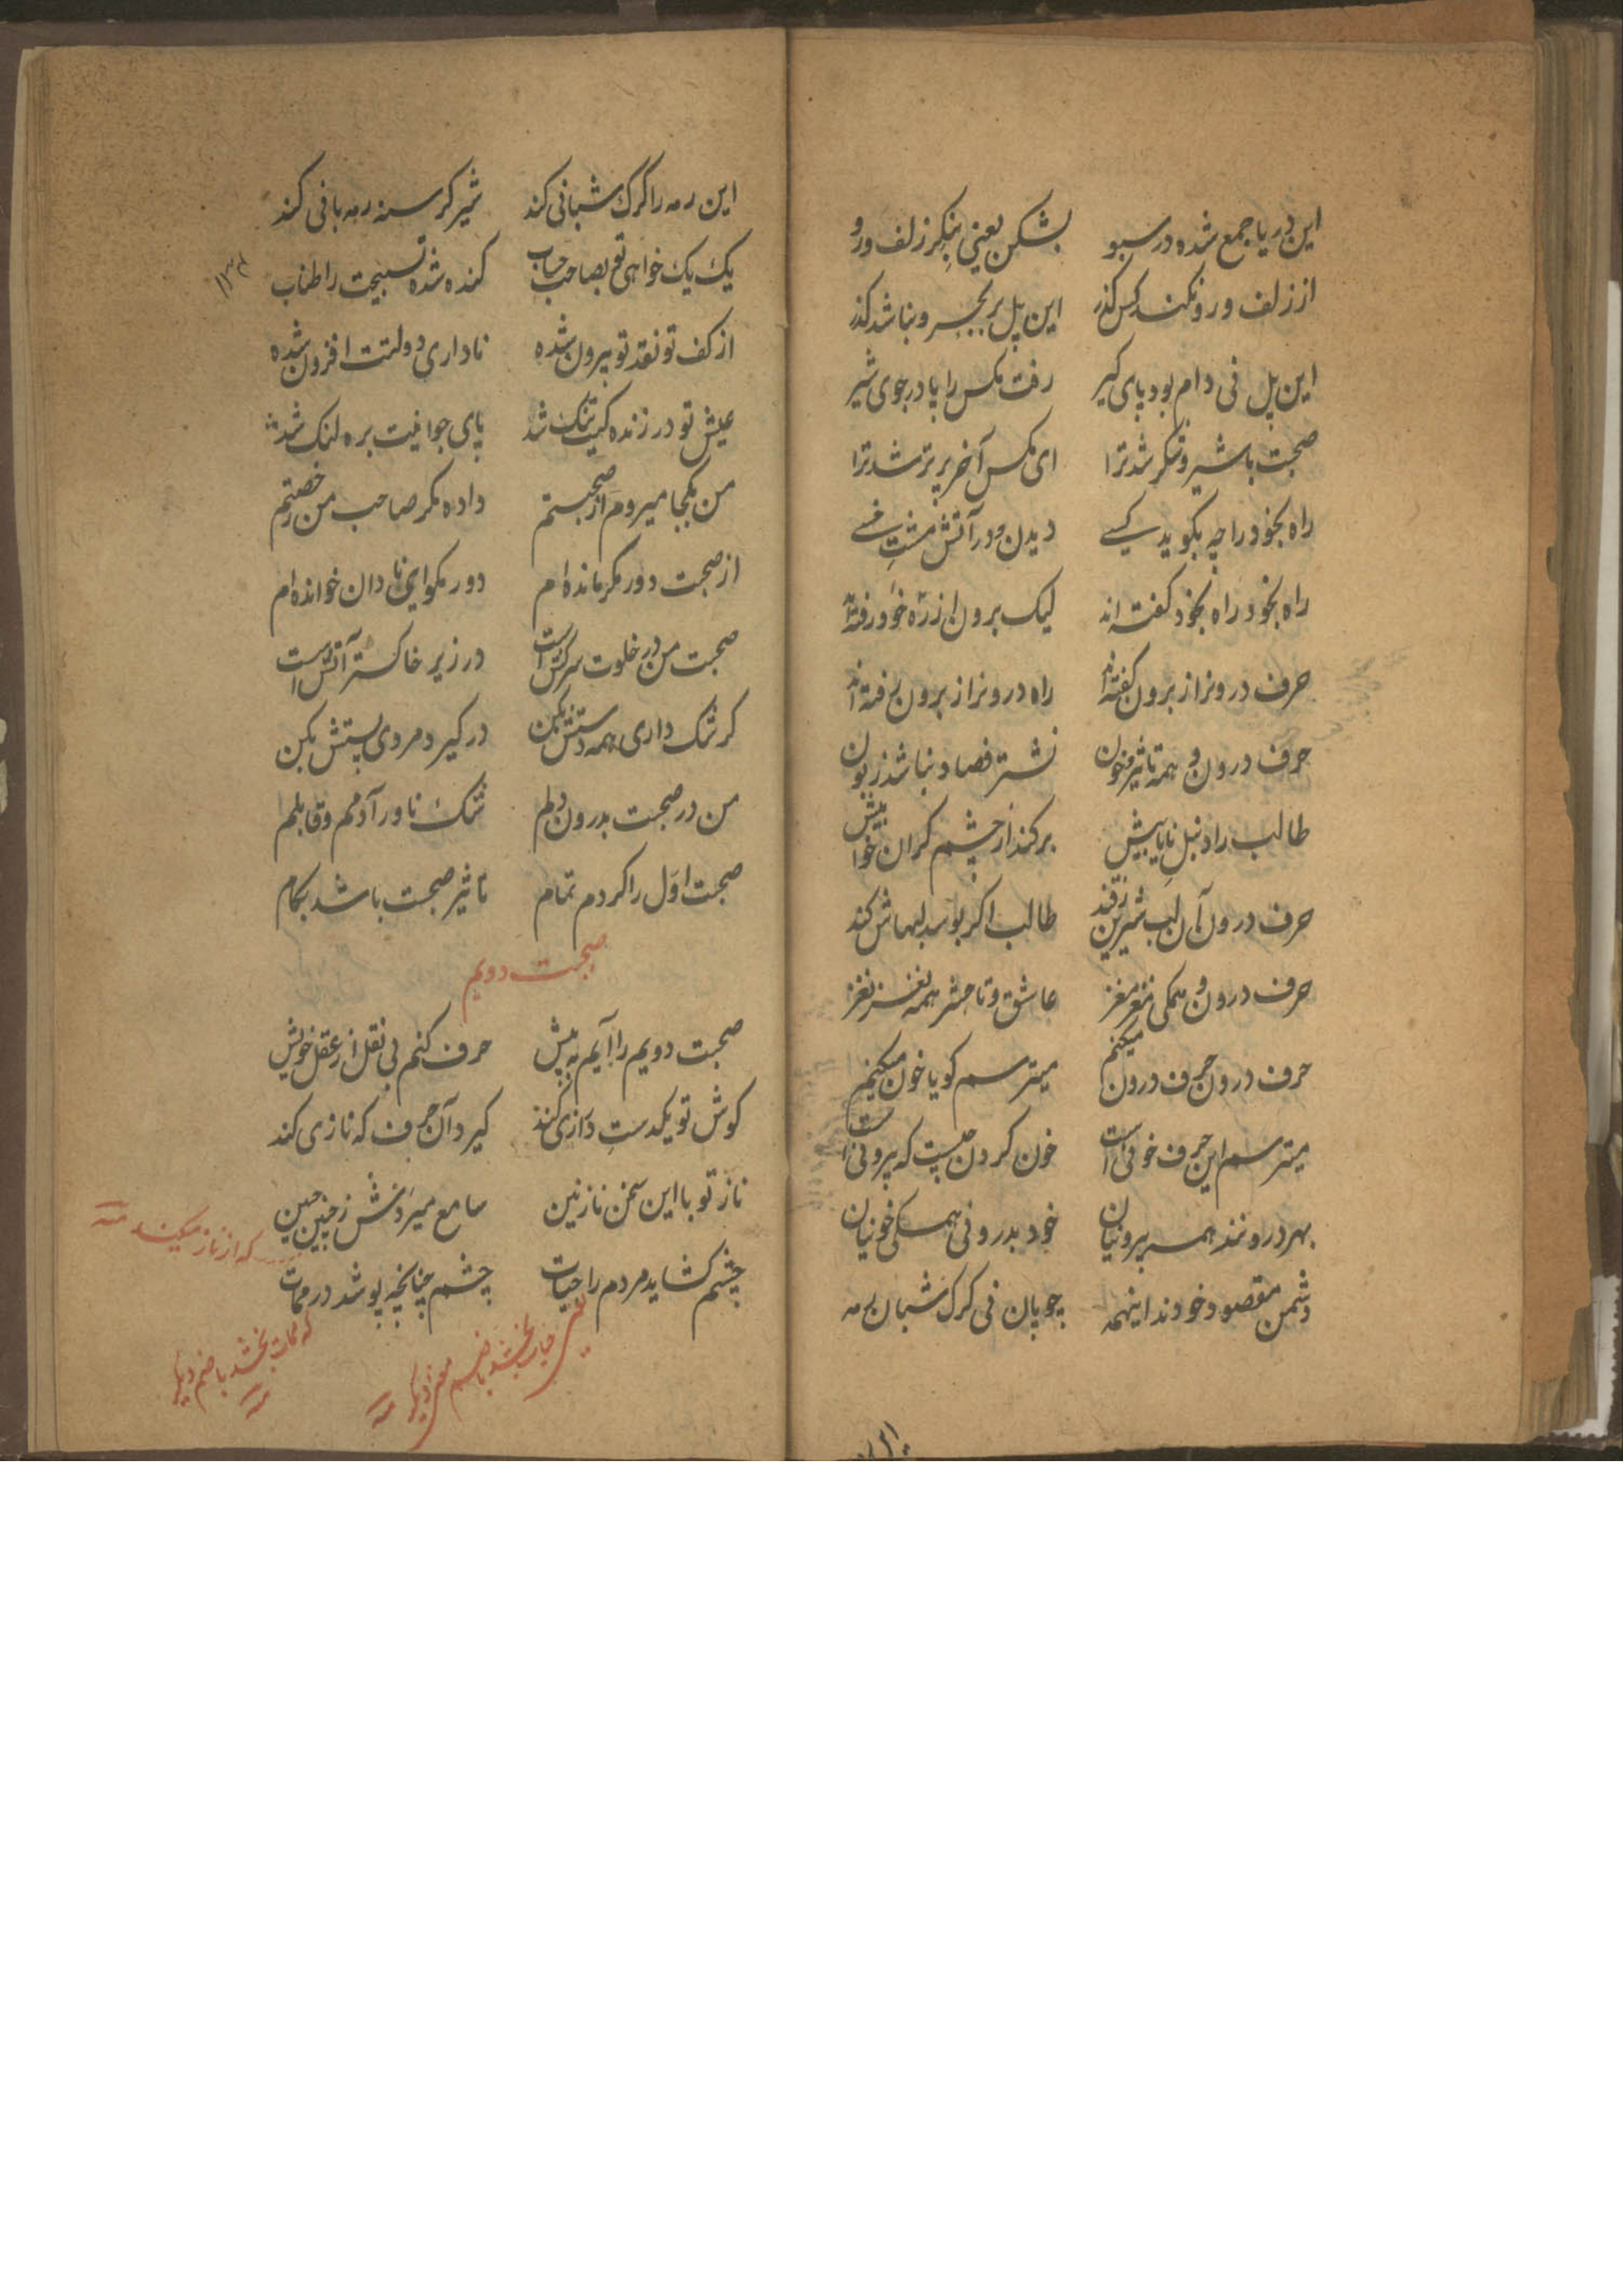 این دریا جمع شده در سبو بشکن یعنی بنگر زلف و رو
از زلف و رو نکند کس گذر این پل بر بحر و بنا شد گذر
این پل نی دام بود پای گیر رفت مکس را پا در جوی شیر
صحبت با شیر و شکر شد ترا ای مکس آخر پر تر شد ترا
راه بخود را چه بکوید کسے دیدن و در آتش مشتِ خسے
راه بخود راه بخود کفته اند لیک برون از ره خود رفته اند
حرف درونرا ز برون کفته اند راه درونرا ز برون رفته اند
حرف درون و همه تاثیر خون نشتر فصاد نباشد زبون
طالب را دنبل نایاب بیش برکند از چشم کران خواب بیش
حرف درون آن لب شیرین ز قند طالب اکر بوسد لبهاش کند
حرف درون و همکی مغز مغز عاشق و تا حشر همه نغز نغز
حرف درون حرف درون میکنم میترسم کویا خون میکنم
میترسم این حرف خونی است خون کردن چیست که بیرونی است
بهر درونند همه بیرونیان خود بدرونی همکی خونیان
دشمن مقصود خودند اینهمه چوپان نی کرک شبان رمه
این رمه را کرک شبانی کند شیر کرسنه رمه بانی کند
یک یک خواهی تو بصاحب حساب کنده شده تسبیحت را طناب
۱۳۲
از کف تو نقد تو بیرون شده ناداری دولتت افزون شده
عیش تو در زنده کیت تنک شد پای جوانیت بره لنک شد
من بکجا میروم از صحبتم داده مکر صاحب من رخصتم
از صحبت دور مکر مانده ام دور مکو ای نادان خوانده ام
صحبت من در خلوت سرکش است در زیر خاکستر آتش است
کر شک داری همه دستش بکن در کیر و مروی پستش بکن
من در صحبت بدرون دلم شک ناور آدمم و قابلم
صحبت اول را کردم تمام تاثیر صحبت باشد بکام
صحبت دویم
صحبت دویم را آیم به پیش حرف کنم بی نقل از عقل خویش
کوش تو یکدستِ درازی کند کیرد آن حرف که نازی کند
ناز تو با این سخن نازنین سامع میردش ز چین جبین
که از ناز میکند منه
چشم کشاید مردم را حیات چشم چنانچه پوشد در ممات
یعنی حیات بخشد با ضم معنی دیکر منه
که ممات بخشد با ضم دیکر منه